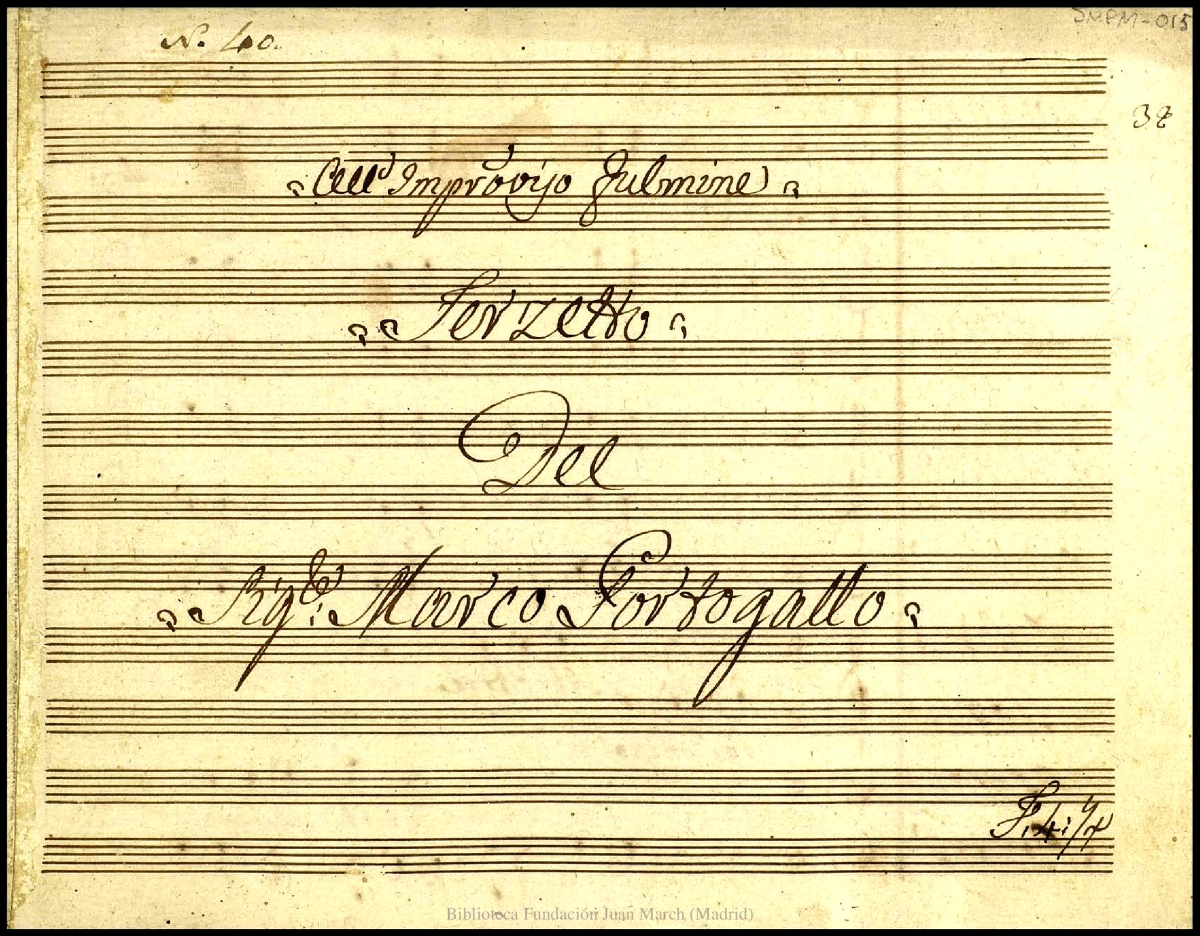 SMPM-015
N. 40.
38
All' Improviso Fulmine
Terzetto
Del
Sigre: Marco Portogallo
F. 4:
Biblioteca Fundación Juan March (Madrid)